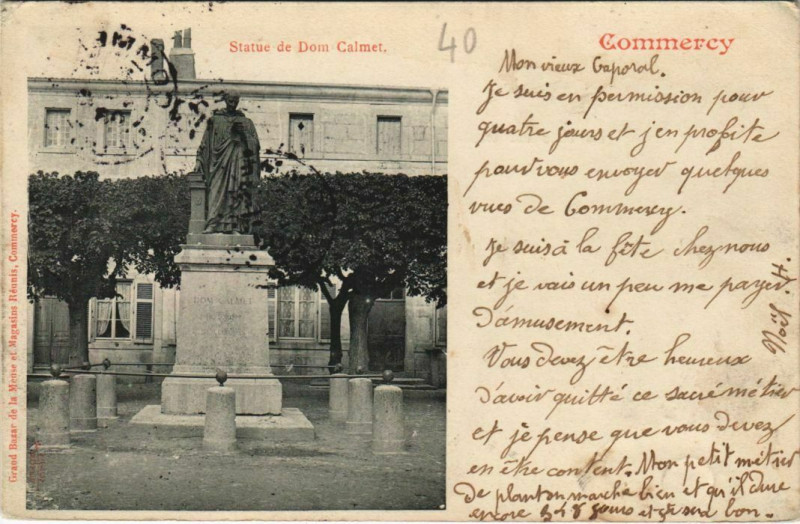 Statue de Dom Calmet.
40
Commercy
Grand Bazar de la Meuse et Magasins Réunis, Commercy.
DOM CALMET
Mon vieux Caporal.
Je suis en permission pour
quatre jours et j'en profite
pour vous envoyer quelques
vues de Commercy.
Je suis à la fête chez nous
et je vais un peu me payer
d'amusement.
Vous devez être heureux
d'avoir quitté ce sacré métier
et je pense que vous devez
en être content. Mon petit métier
de planton marche bien et qu'il dure
encore jours et ce sera bon.
Noël . H.